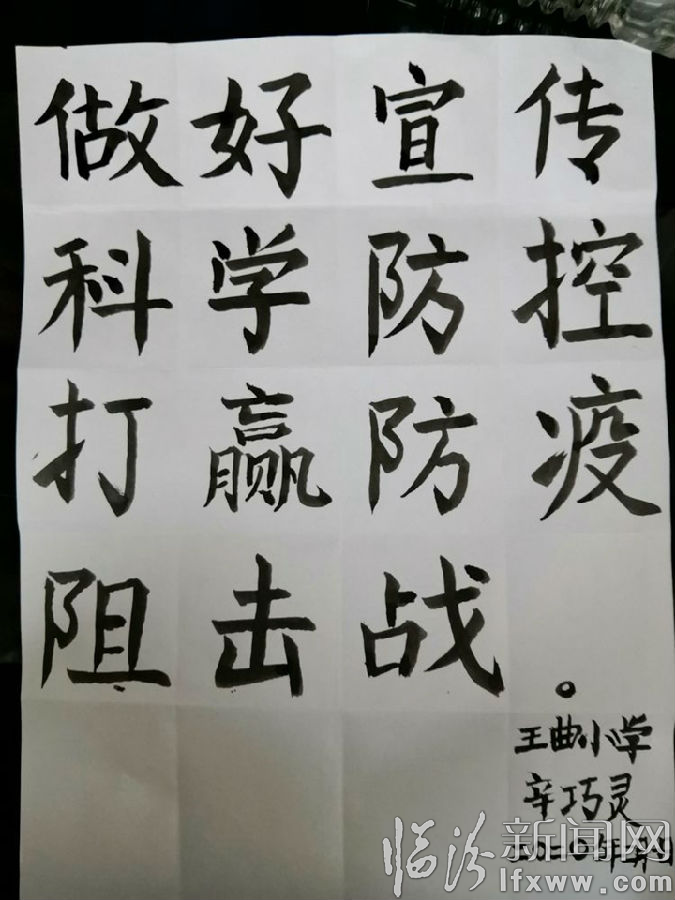 做好宣传
科学防控
打赢防疫
阻击战
。
王曲小学
辛巧灵
二0二0年
临汾新闻网
lfxww.com